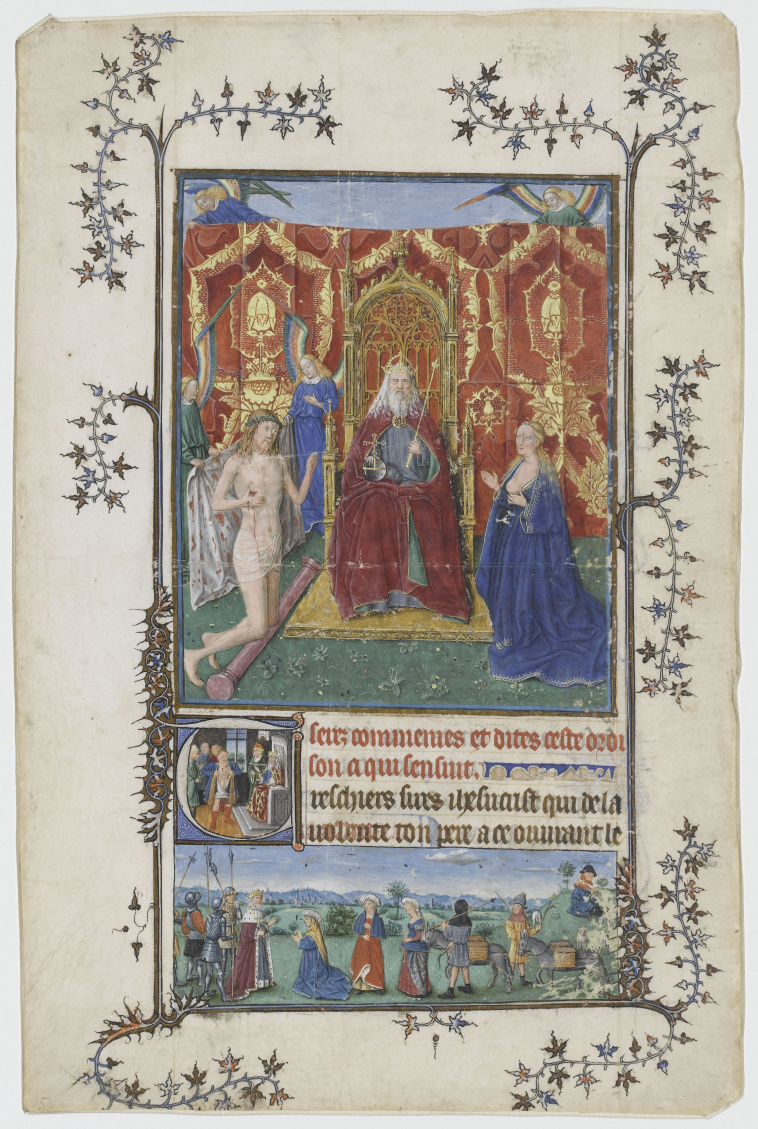 serez commenies et dites ceste oroi
son a qui sensiut.
Treschiers sires ihesucrist qui de la
uolente ton pere a ce ouurant le